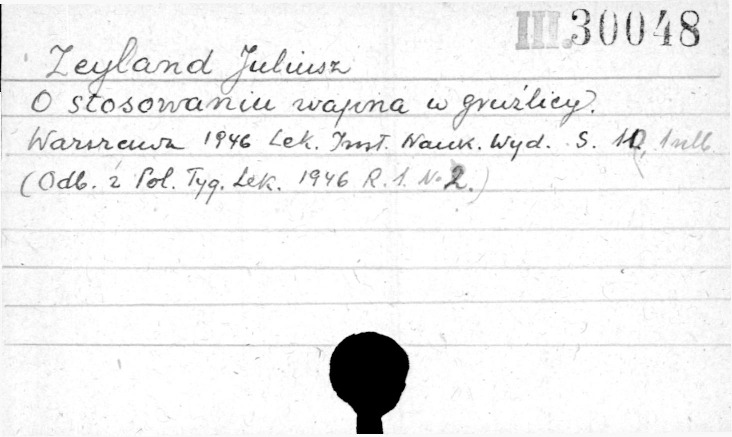 III.30048
Zeyland Juliusz
O stosowaniu wapna w gruźlicy.
Warszawa 1946 Lek. Inst. Nauk. Wyd. S. 10, 1 nlb.
(Odb. z Pol. Tyg. Lek. 1946 R. 1. No 2.)